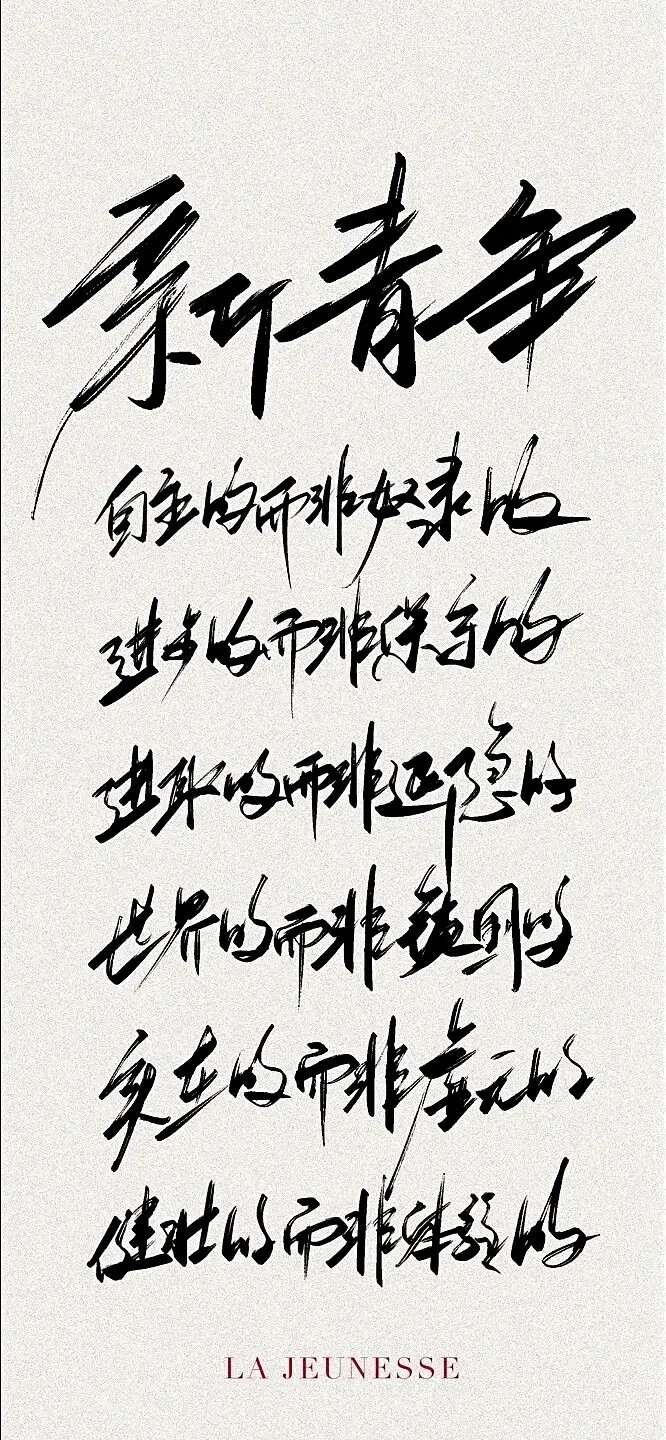 新青年
自主的而非奴隶的
进步的而非保守的
进取的而非退隐的
世界的而非锁国的
实在的而非虚无的
健壮的而非的
LA JEUNESSE